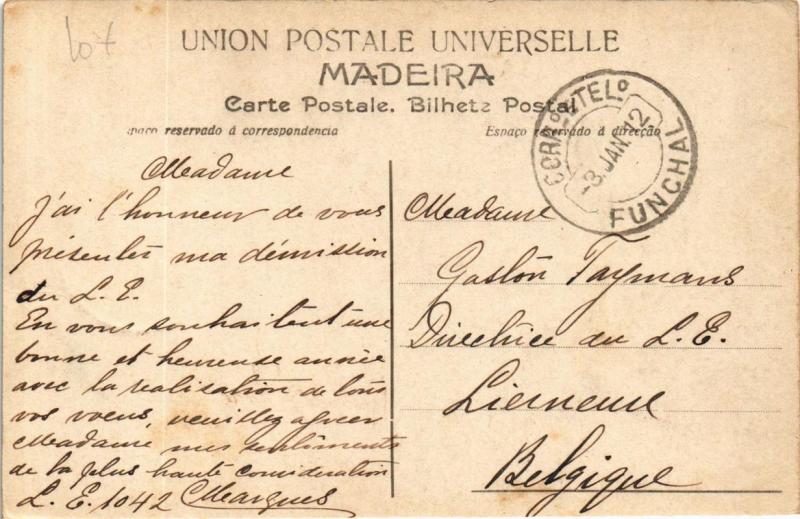 lot
UNION POSTALE UNIVERSELLE
MADEIRA
Carte Postale. Bilhete Postal
paço reservado á correspondencia
Espaço reservado á direcção
CORRº. TELº
3. JAN. 12
FUNCHAL
Madame
J'ai l'honneur de vous
présenter ma démission
du L. E.
En vous souhaitant une
bonne et heureuse année
avec la realisation de tous
vos voeux, veuillez agreer
Madame, mes sentiments
de la plus haute consideration
L. E. 1042 Marques
Madame
Gaston Taymans
Directrice du L. E.
Lierneux
Belgique